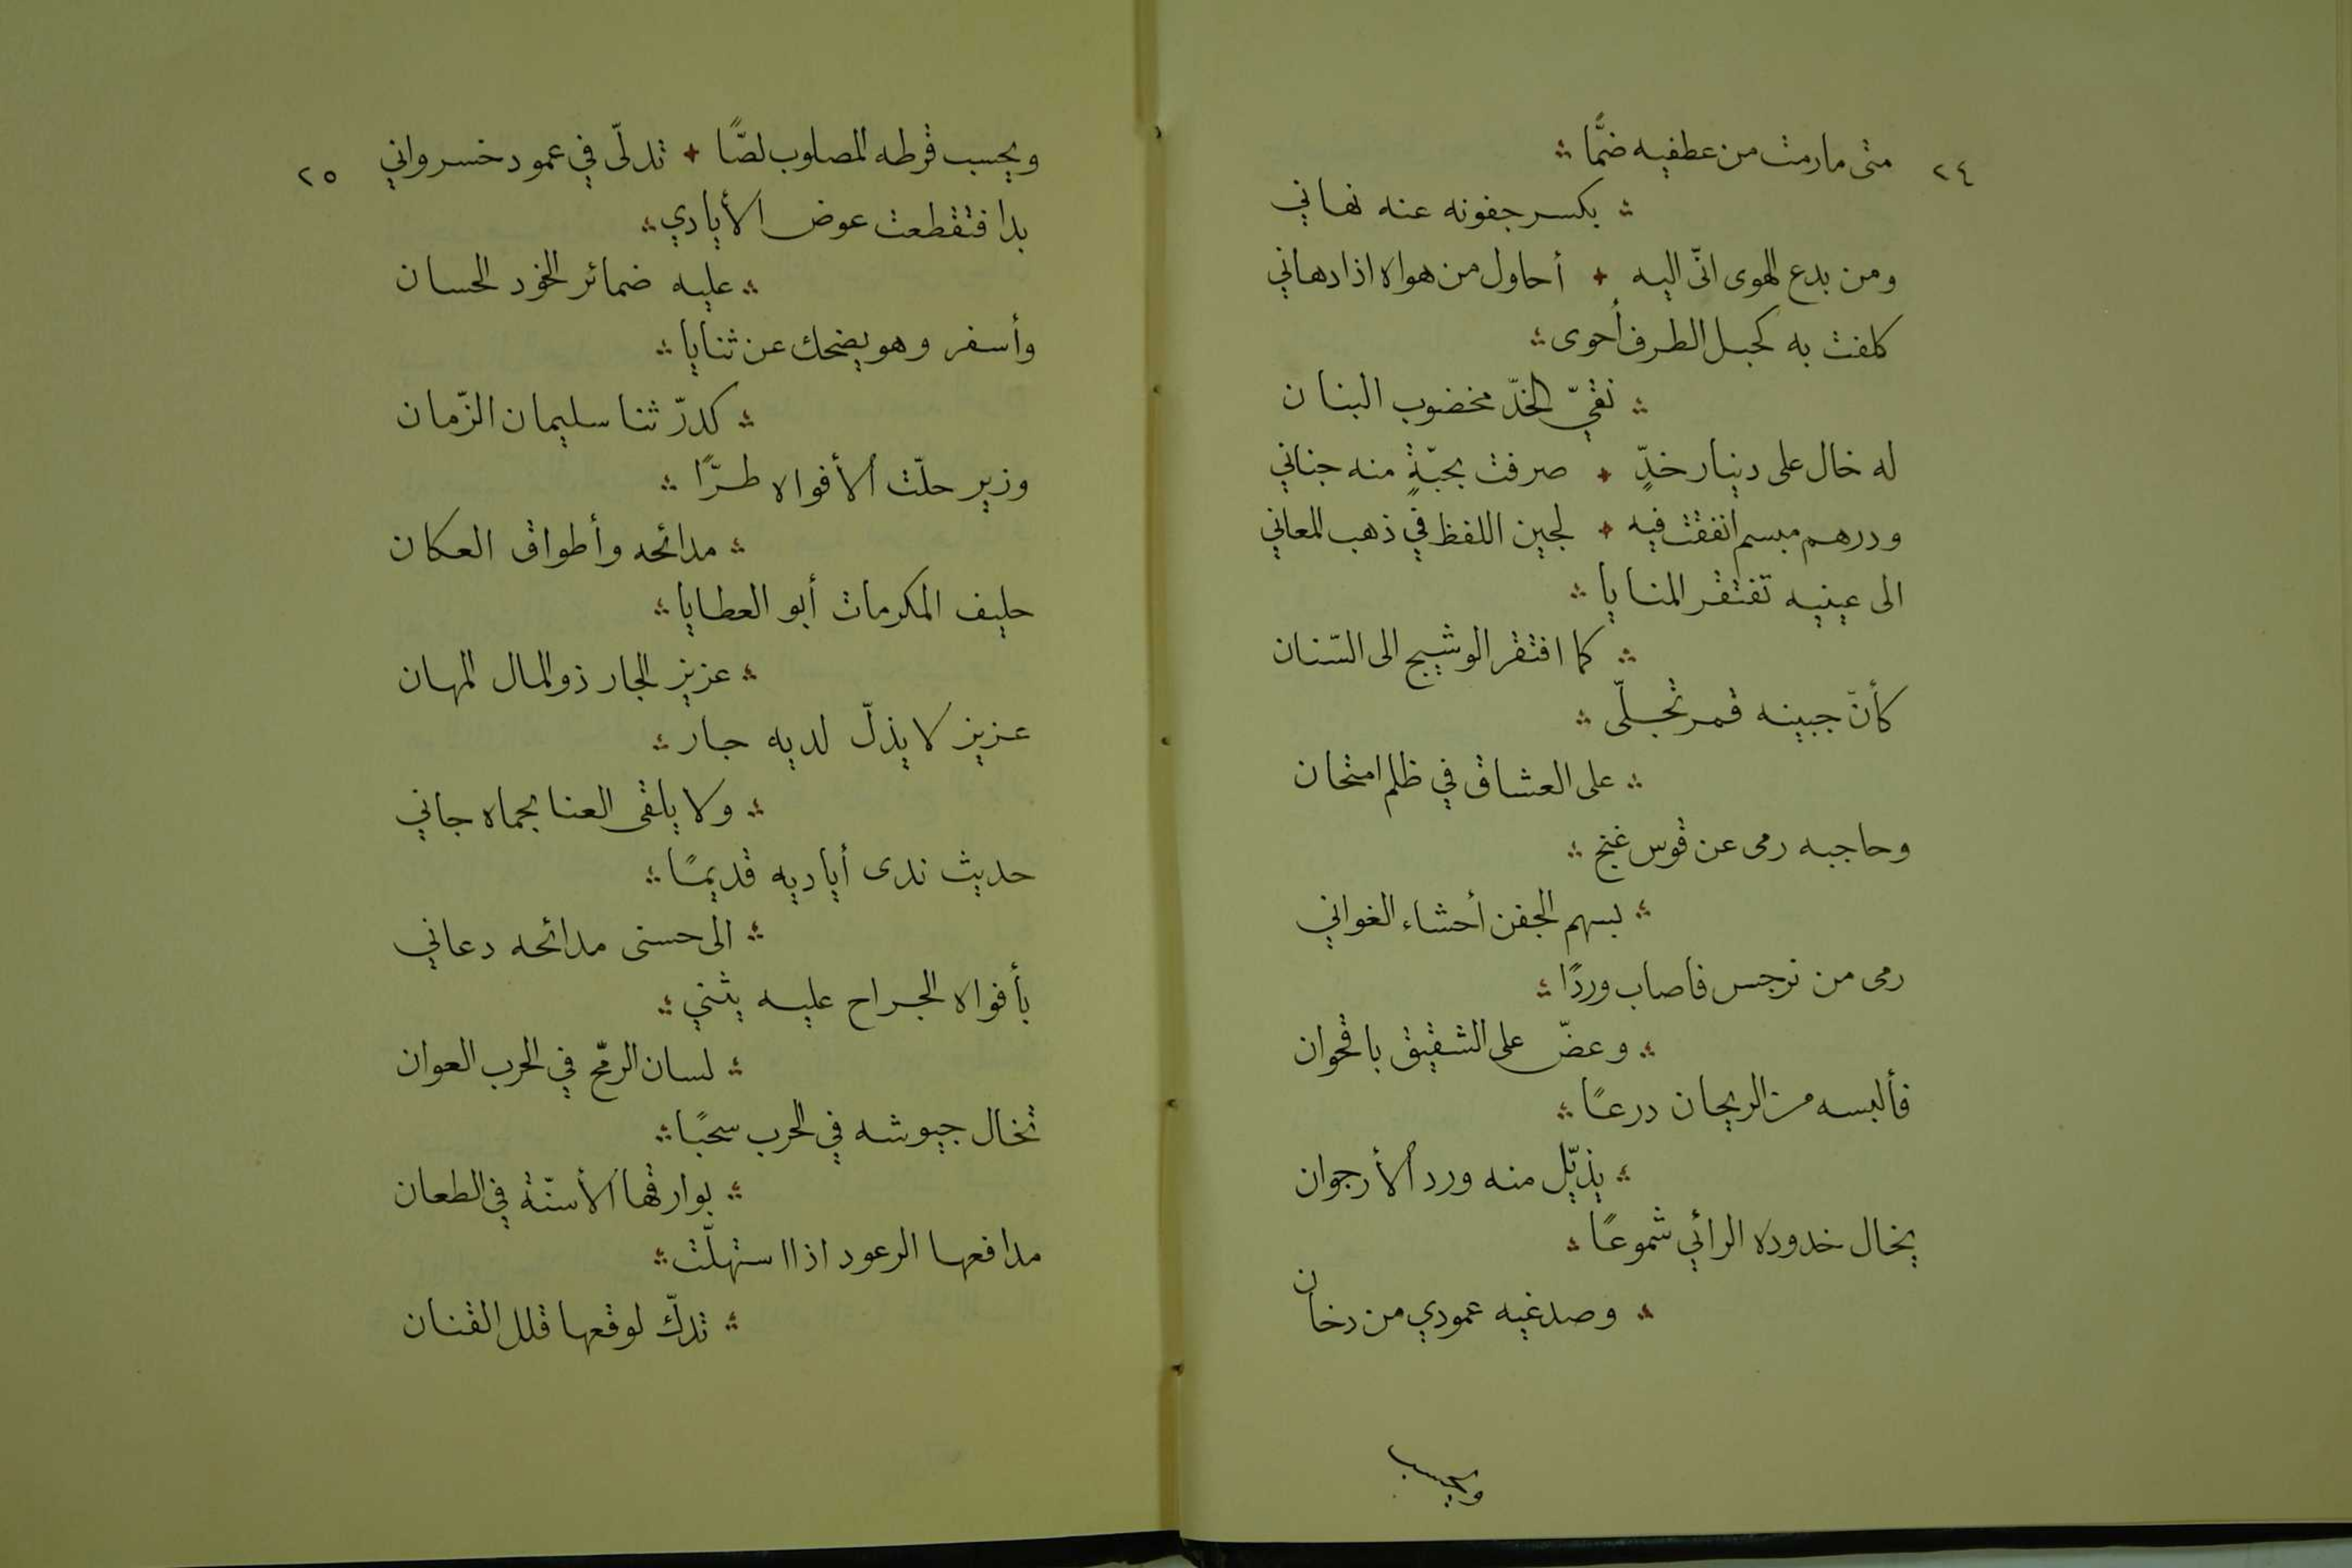 ٢٤
متى مارمت من عطفيه ضمًّا
بكسر جفونه عنه نهاني
ومن بدع الهوى انّى اليه + أحاول من هواه اذا دهاني
كلفت به كحيل الطرف أحوى
نقيّ الخدّ مخضوب البنان
له خال على دينار خدٍّ + صرفت بحبّةٍ منه جناني
ودرهم مبسم انفقت فيه + لجين اللفظ في ذهب المعاني
الى عينيه تفتقر المنايا
كما افتقر الوشيج الى السّنان
كأنّ جبينه قمر تجلّى
على العشاق في ظلم امتحان
وحاجبه رمى عن قوس غنج
بسهم الجفن أحشاء الغواني
رمى من نرجس فاصاب وردًا
وعضّ على الشقيق باقحوان
فألبسه من الريحان درعًا
يذيّل منه ورد الأرجوان
يخال خدوده الرائي شموعًا
وصدغيه عمودي من دخان
ويحسب
٢٥
ويحسب قرطه المصلوب لصًّا + تدلّى في عمود خسرواني
بدا فتقطعت عوض الأيادي
عليه ضمائر الخود الحسان
وأسفر وهو يضحك عن ثنايا
كدرّ ثنا سليمان الزّمان
وزير حلّت الأفواه طرًّا
مدائحه وأطواق العكان
حليف المكرمات أبو العطايا
عزيز الجار ذو المال المهان
عزيز لا يذلّ لديه جار
ولا يلقى العنا بحماه جاني
حديث ندى أياديه قديمًا
الى حسنى مدائحه دعاني
بأفواه الجراح عليه يثني
لسان الرمّح في الحرب العوان
تخال جيوشه في الحرب سحبًا
بوارقها الأسنّة في الطعان
مدافعها الرعود اذا استهلّت
تدكّ لوقعها قلل القنان